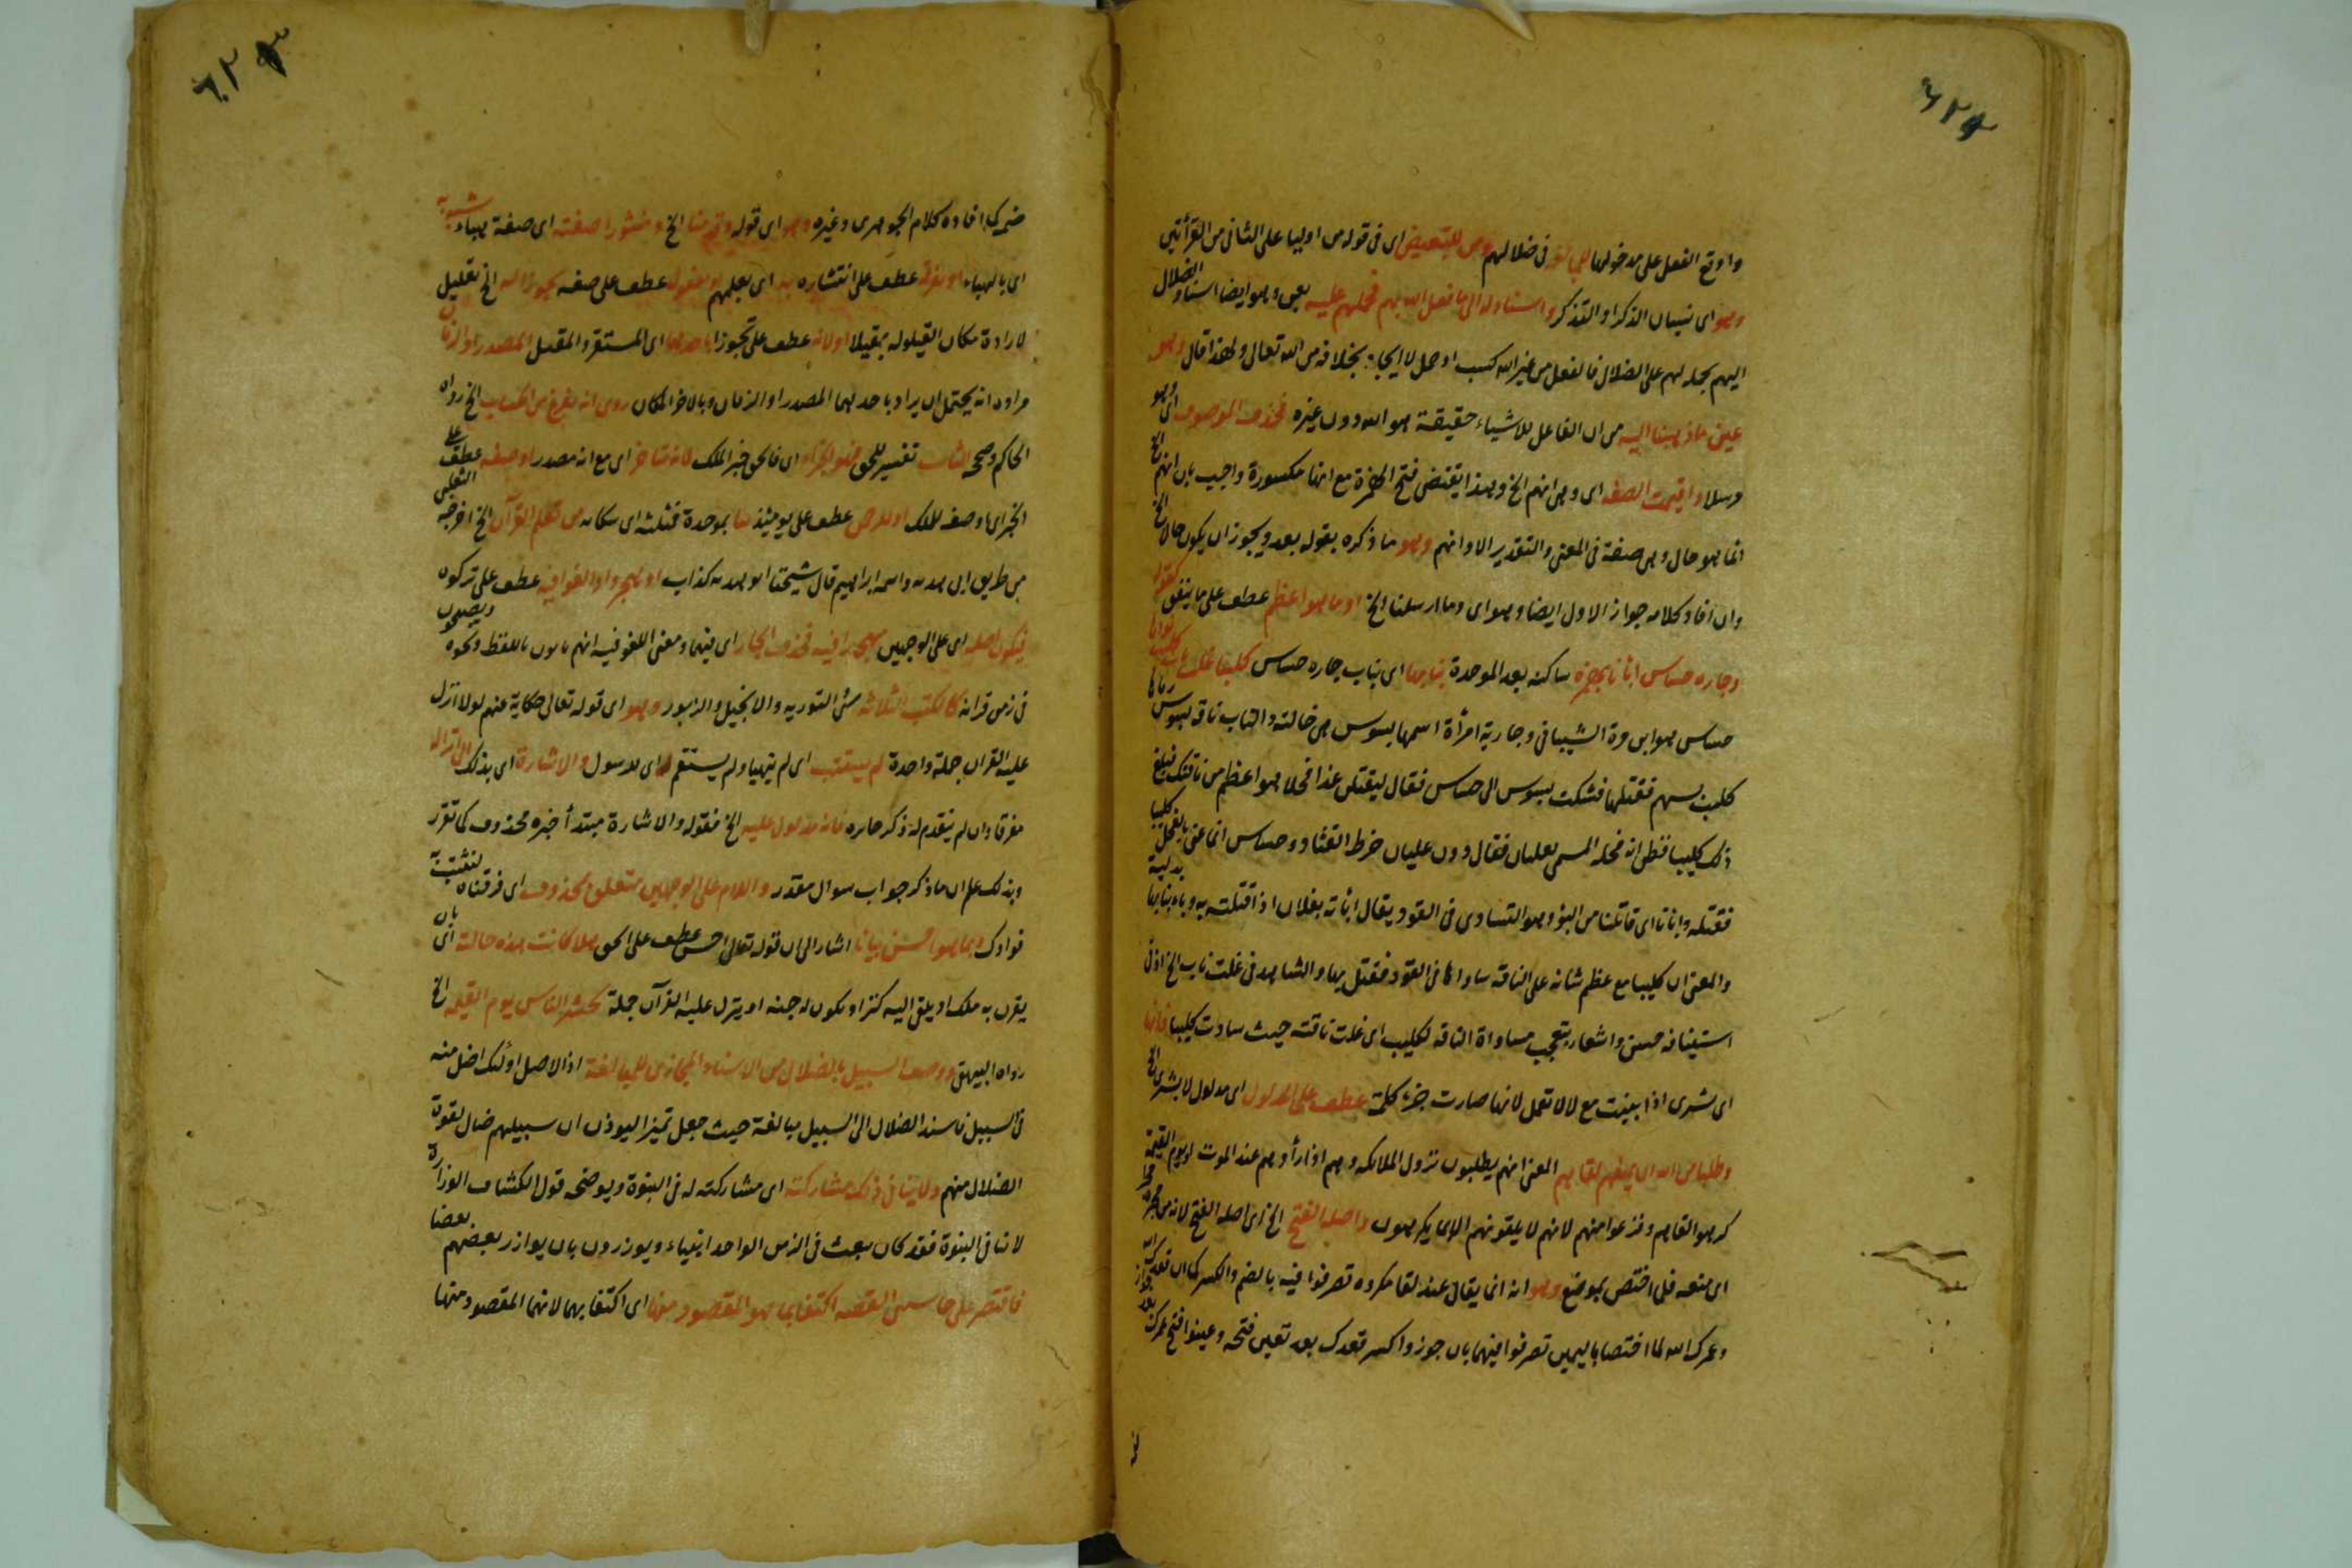 ٦٢٤
واوقع الفعل على مدخولها للمبالغة فى ضلالهم ومن للتبعيض اى فى قوله من اوليا على الثانى من القرأتين
وهو اى نسيان الذكر او التذكر واسناد له الى ما فعل الله بهم فحملهم عليه يعنى وهو ايضا اسناد الضلال
اليهم بحمله لهم على الضلال فالفعل من غير الله كسب او حمل لا ايجاد بخلافه من الله تعالى ولهذا قال وهو
عين ما ذهبنا اليه من ان الفاعل للاشياء حقيقة هو الله دون غيره فحذف الموصوف اى وهو
رسلا واقيمت الصفة اى وهى انهم الخ وهذا يقتضى فتح الهمزة مع انها مكسورة واجيب بان انهم الخ
انما هو حال وهى صفة فى المعنى والتقدير الا وانهم وهو ما ذكره بقوله بعد ويجوز ان يكون حالا الخ
وان افاد كلامه جواز الاول ايضا وهو اى وما ارسلنا الخ او ما هو اعظم عطف على ما يتفق كقوله
وجاره جساس ابأنا بهمزة ساكنه بعد الموحدة بنابها اى بناب جاره جساس كليبا غلت ناب
جساس هو ابن مرة الشيبانى وجارية امرأة اسمها بسوس هى خالته والناب ناقة بسوس رماها
كليب بسهم فقتلها فشكت بسوس الى جساس فقال ليقتلن غدا فحلا هو اعظم من ناقتك فبلغ
ذلك كليبا فظن انه فحله المسمى بعليان فقال دون عليان خرط القتاد وجساس انما عنى بالفحل كليبا
فقتله وابأنا اى قاتلنا من البؤ وهو التساوى فى القود يقال ابأته بفلان اذا قتلته به وباء بنابها بدلية
والمعنى ان كليبا مع عظم شانه على الناقة ساواها فى القود فقتل بها والشاهد فى غلت ناب الخ اذ فى
استينافه حسن واشعار بتعجب مساواة الناقه لكليب اى غلت ناقته حيث ساوت كليبا فانها
اى بشرى اذا بنيت مع لا لا تعمل لانها صارت جزء كلمة عطف على المدلول اى مدلول لا بشرى الخ
وطلبا من الله ان يمنعهم لقاهم المعنى انهم يطلبون نزول الملائكه وهم اذا رأوهم عند الموت او يوم القيمة
كرهوا لقاهم وفزعوا منهم لانهم لا يلقونهم الا بما يكرهون واصله الفتح الخ اى اصله الفتح لانه من حجره
اى منعه فلما اختص بموضع وهو انه انما يقال عند لقا مكروه تصرفوا فيه بالضم والكسر كما ان قعدك الله
وعمرك الله لما اختصا باليمين تصرفوا فيهما بان جوزوا كسر قعدك بعد تعين فتحه وعينوا فتح عمرك بعد جواز
ضمه
٦٢٥
ضمه كما افاده كلام الجوهرى وغيره وهو اى قوله وقدمنا الخ ومنثورا صفته اى صفة هباء شبه به
اى بالهباء او تفرقه عطف على انتشاره به اى بعملهم او مفعول عطف على صفة تجوزا له الخ تعليل
لارادة مكان القيلوله بمقيلا او لانه عطف على تجوزا باحدهما اى المستقر والمقيل المصدر او الزمان
مراده انه يحتمل ان يراد باحدهما المصدر او الزمان وبالاخر المكان روى انه يفرغ من الحساب الخ رواه
الحاكم وصححه الثابت تفسير للحق فهو الخبر اى فالحق خبر الملك لانه متاخر اى مع انه مصدر او صفة عطف على
الخبر اى او صفه للملك او للرحمن عطف على يومئذ بموحدة فمثلثه اى سكانه من تعلم القرآن الخ اخرجه الثعلبى
من طريق ابى هدبه واسمه ابراهيم قال شيخنا ابو هدبه كذاب او هجروا والغوا فيه عطف على تركوه
فيكون اصله اى على الوجهين مهجورا فيه فحذف الجار اى فيهما ومعنى اللغو فيه انهم باللفظ ونحوه ويصيحون
فى زمن قراءته كالكتب الثلاثه من التوريه والانجيل والزبور وهو اى قوله تعالى حكاية عنهم لولا انزل
عليه القران جملة واحدة لم يستتب اى لم يتهيا ولم يستقم له اى للرسول والاشارة اى بذلك الى انزاله
مفرقا وان لم يتقدم له ذكر فانه مدلول عليه الخ فقوله والاشارة مبتدأ خبره محذوف كما تقرر
وبذلك علم ان ما ذكر جواب سوال مقدر واللام على الوجهين متعلق بمحذوف اى فرقناه لنثبت به
فوادك وبما هو احسن بيانا اشار الى ان قوله تعالى احسن عطف على الحق هلا كانت هذه حالته اى بان
يقرن به ملك او يلقى اليه كنز او تكون له جنه او ينزل عليه القرآن جملة يحشر الناس يوم القيمه الخ
رواه البيهقى ووصف السبيل بالضلال من الاسناد المجازى للمبالغة اذ الاصل اولئك اضل منه
فى السبيل فاسند الضلال الى السبيل مبالغة حيث جعل تميزا ليوذن ان سبيلهم ضال لقوة
الضلال منهم ولا ينافى ذلك مشاركته اى مشاركته له فى النبوة ويوضحه قول الكشاف الوزارة
لا تنافى النبوة فقد كان يبعث فى الزمن الواحد انبياء ويوزرون بان يوازر بعضهم بعضا
فاقتصر على حاشيتى القصه اكتفا بما هو المقصود منها اى اكتفا بهما لانهما المقصود منها